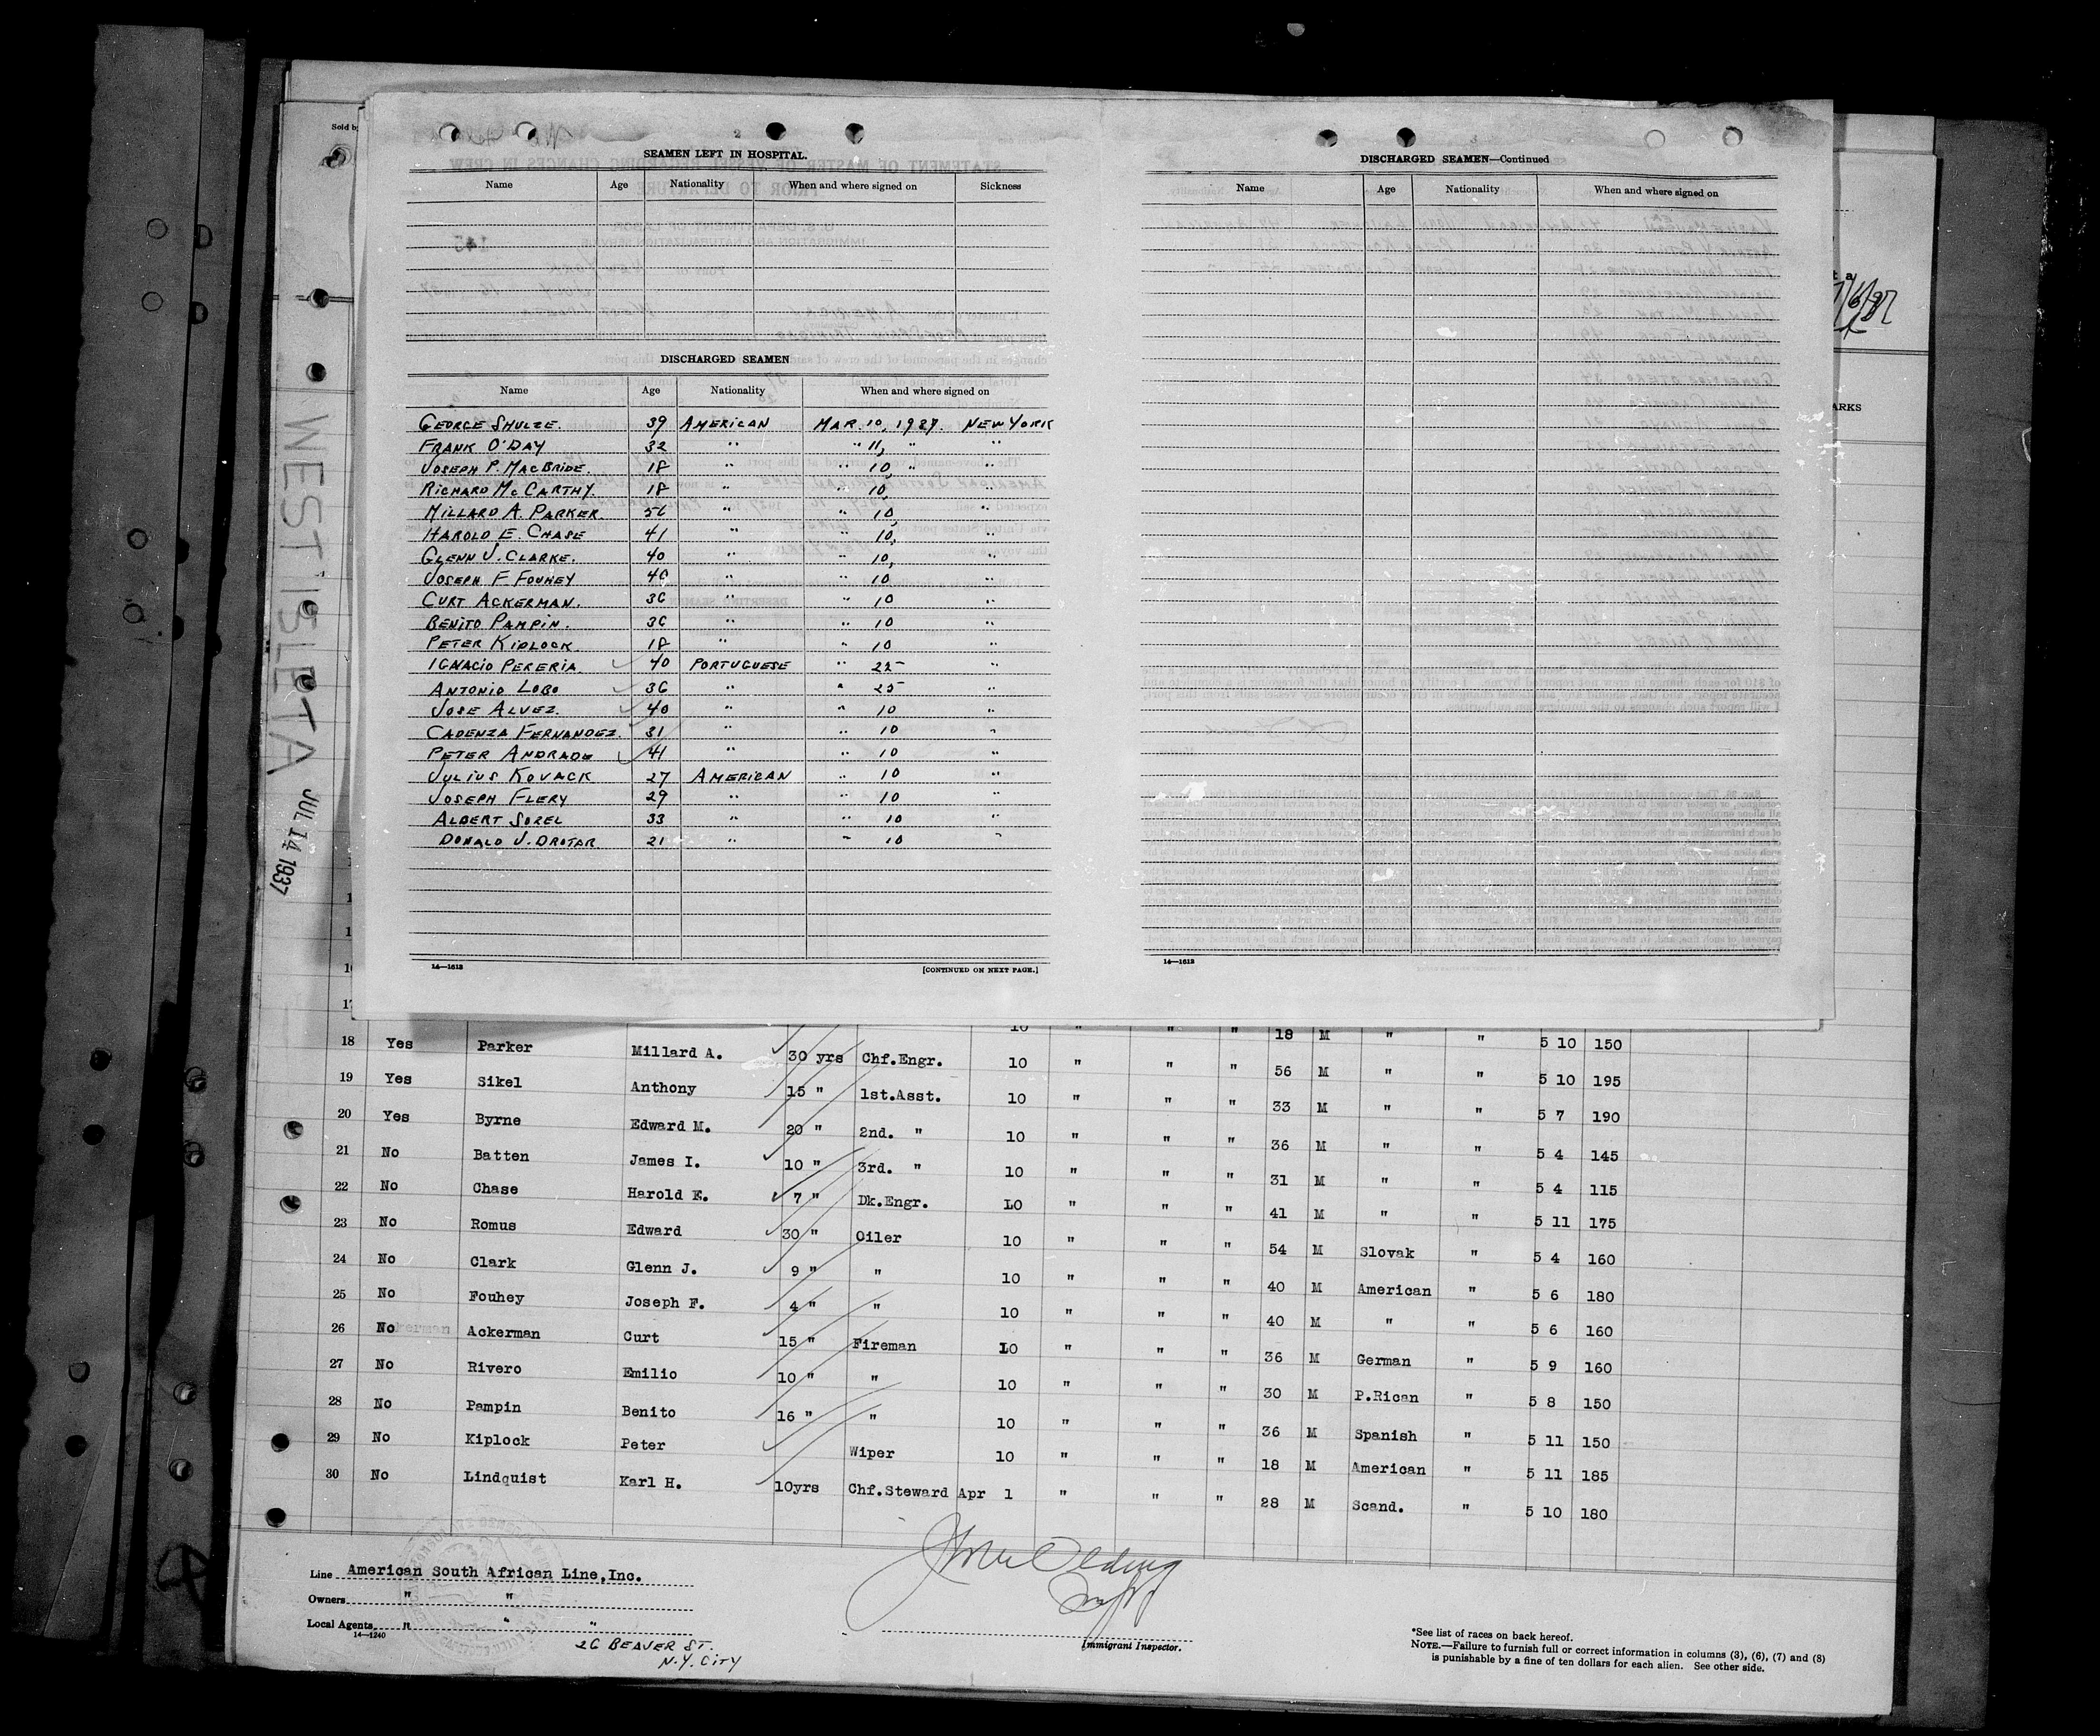 Sold by
2
SEAMEN LEFT IN HOSPITAL.
Name Age Nationality When and where signed on Sickness
DISCHARGED SEAMEN
Name Age Nationality When and where signed on
GEORGE SHULZE. 39 AMERICAN MAR. 10, 1937. NEW YORK
FRANK O'DAY 32 " " 11, " "
JOSEPH P. MACBRIDE. 18 " " 10, " "
RICHARD MCCARTHY. 18 " " 10, "
MILLARD A. PARKER 56 " " 10, "
HAROLD E. CHASE 41 " " 10, "
GLENN J. CLARKE. 40 " " 10, "
JOSEPH F FOUHEY 40 " " 10 "
CURT ACKERMAN. 36 " " 10 "
BENITO PAMPIN. 36 " " 10 "
PETER KIPLOCK. 18 " " 10 "
IGNACIO PERERIA. 40 PORTUGUESE " 25 "
ANTONIO LOBO 36 " " 25 "
JOSE ALVEZ. 40 " " 10 "
CADENZA FERNANDEZ. 31 " " 10 "
PETER ANDRADE 41 " " 10 "
JULIUS KOVACK 27 AMERICAN " 10 "
JOSEPH FLERY 29 " " 10 "
ALBERT SOREL 33 " " 10 "
DONALD J. DROTAR 21 " " 10 "
14—1613 [CONTINUED ON NEXT PAGE.]
3
DISCHARGED SEAMEN—Continued
Name Age Nationality When and where signed on
14—1613
WEST ISLETA
JUL 14 1937
ARKS
17
10 " " " 18 M " " 5 10 150
18 Yes Parker Millard A. 30 yrs Chf.Engr. 10 " " " 56 M " " 5 10 195
19 Yes Sikel Anthony 15 " 1st.Asst. 10 " " " 33 M " " 5 7 190
20 Yes Byrne Edward M. 20 " 2nd. " 10 " " " 36 M " " 5 4 145
21 No Batten James I. 10 " 3rd. " 10 " " " 31 M " " 5 4 115
22 No Chase Harold E. 7 " Dk.Engr. 10 " " " 41 M " " 5 11 175
23 No Romus Edward 30 " Oiler 10 " " " 54 M Slovak " 5 4 160
24 No Clark Glenn J. 9 " " 10 " " " 40 M American " 5 6 180
25 No Fouhey Joseph F. 4 " " 10 " " " 40 M " " 5 6 160
26 No Ackerman Curt 15 " Fireman 10 " " " 36 M German " 5 9 160
27 No Rivero Emilio 10 " " 10 " " " 30 M P.Rican " 5 8 150
28 No Pampin Benito 16 " " 10 " " " 36 M Spanish " 5 11 150
29 No Kiplock Peter Wiper 10 " " " 18 M American " 5 11 185
30 No Lindquist Karl H. 10yrs Chf.Steward Apr 1 " " " 28 M Scand. " 5 10 180
Line American South African Line,Inc.
Owners " "
Local Agents " " "
14—1240
26 BEAVER ST.
N.Y. CITY
Immigrant Inspector.
*See list of races on back hereof.
NOTE.—Failure to furnish full or correct information in columns (3), (6), (7) and (8)
is punishable by a fine of ten dollars for each alien. See other side.